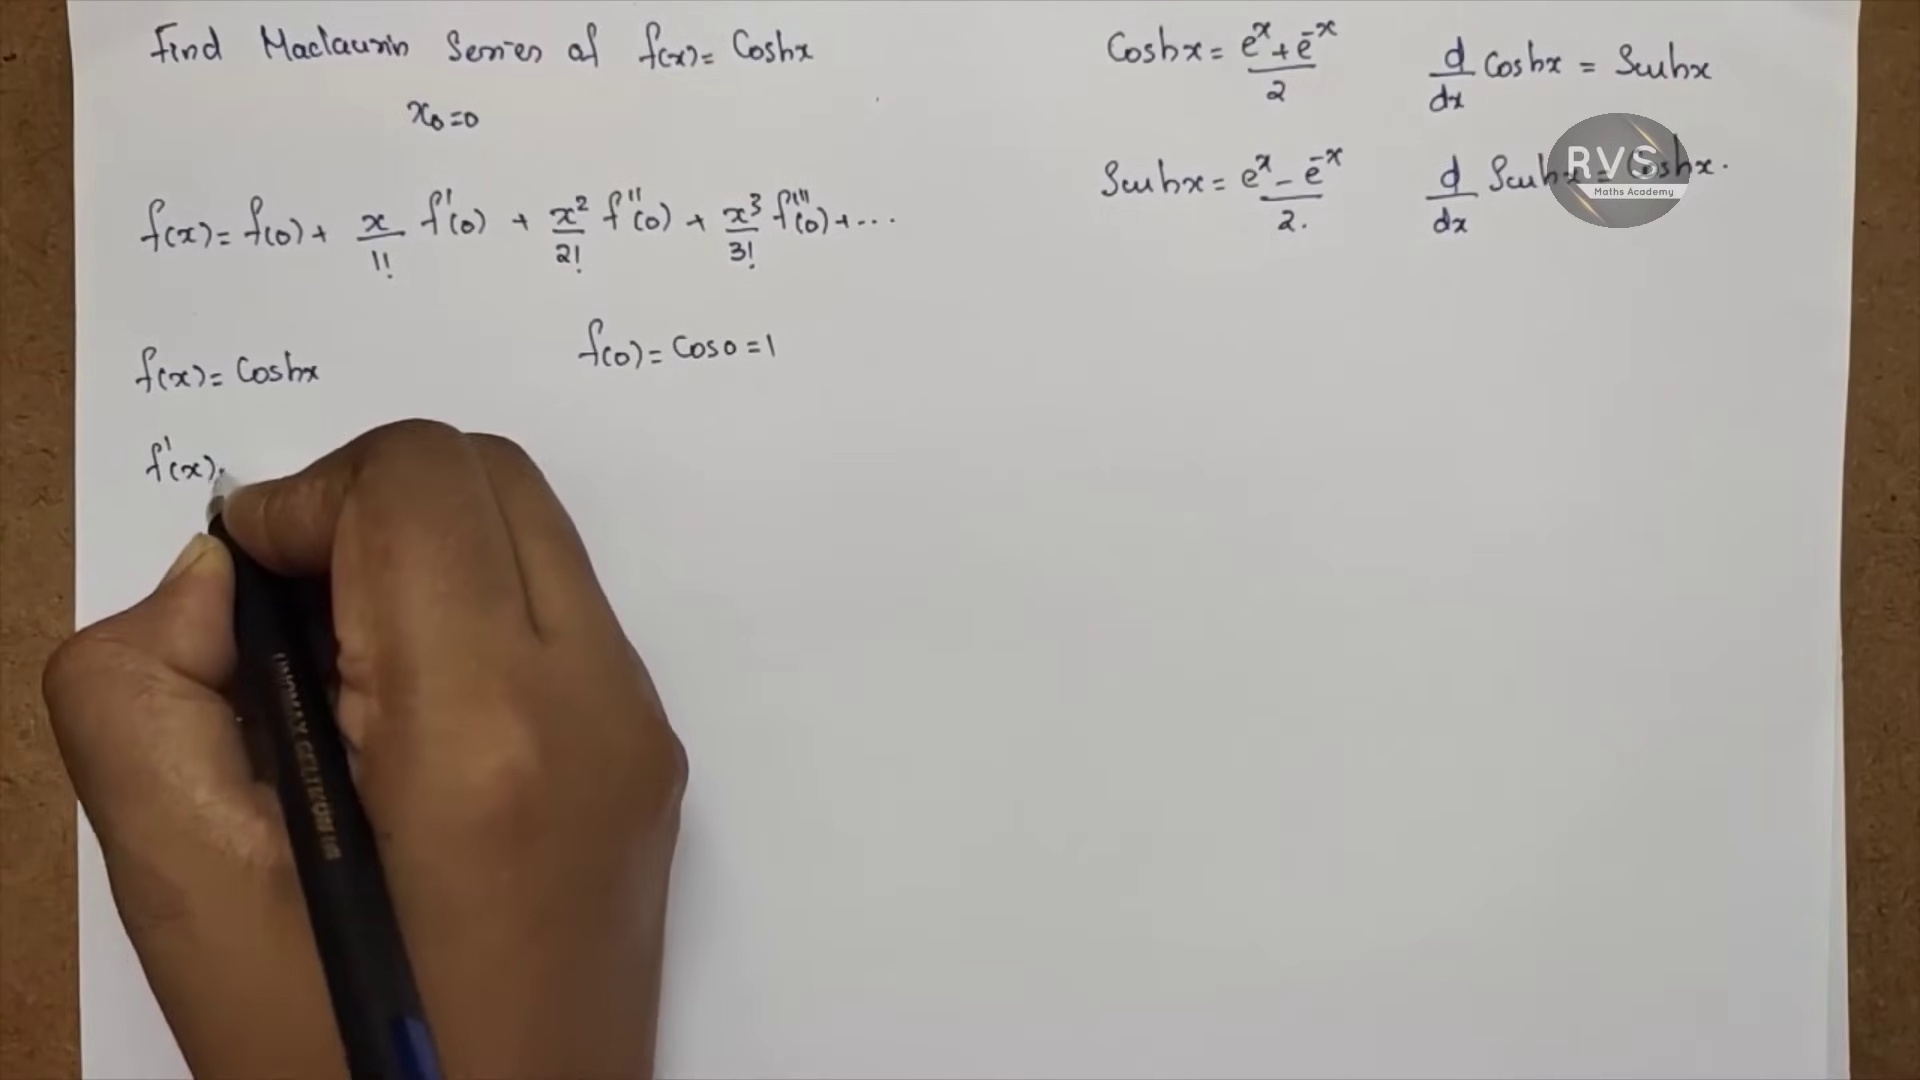 Find Maclaurin Series of f(x) = Coshx
x₀ = 0
f(x) = f(0) + x/1! f'(0) + x²/2! f''(0) + x³/3! f'''(0) + ...
f(x) = Coshx
f(0) = Cos0 = 1
f'(x)
Coshx = (eˣ + e⁻ˣ)/2
d/dx Coshx = Sinhx
Sinhx = (eˣ - e⁻ˣ)/2.
d/dx Sinhx = Coshx.
RVS
Maths Academy
UNOMAX GELTRON